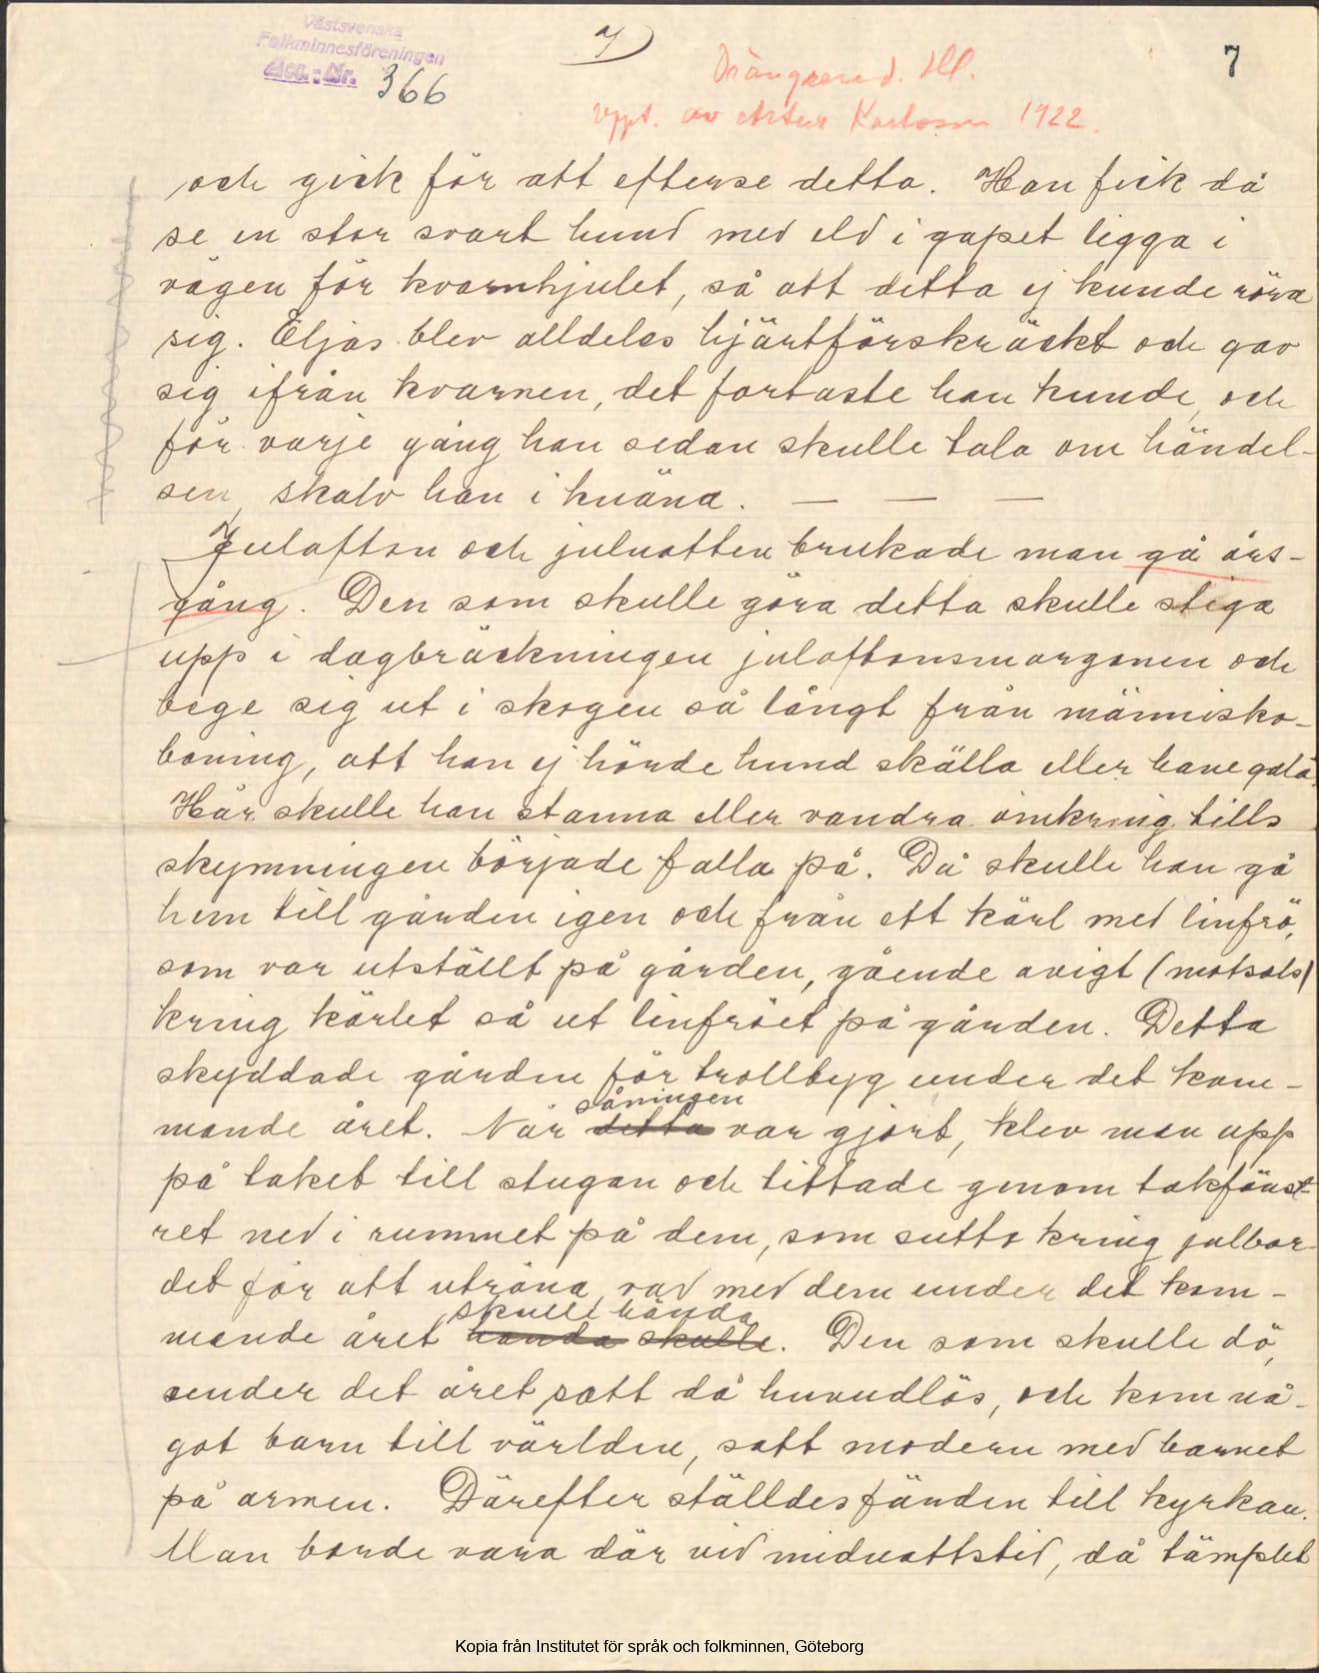 Västsvenska
Folkminnesföreningen
Acc.-Nr. 366
7
7
Drängsered. Hl.
Uppt. av Artur Karlsson 1922.
och gick för att efterse detta. Han fick då
se en stor svart hund med eld i gapet ligga i
vägen för kvarnhjulet, så att detta ej kunde röra
sig. Eljas blev alldeles hjärtförskräckt och gav
sig ifrån kvarnen, det fortaste han kunde, och
för varje gång han sedan skulle tala om händel-
sen, skalv han i knäna. — — —
Julafton och julnatten brukade man gå års-
gång. Den som skulle göra detta skulle stiga
upp i dagbräckningen julaftonsmorgonen och
bege sig ut i skogen så långt från människo-
boning, att han ej hörde hund skälla eller hane gala.
Här skulle han stanna eller vandra omkring tills
skymningen började falla på. Då skulle han gå
hem till gården igen och från ett kärl med linfrö,
som var utställt på gården, gående avigt (motsols)
kring kärlet så ut linfröet på gården. Detta
skyddade gården för trolltyg under det kom-
mande året. När detta såningen var gjort, klev man upp
på taket till stugan och tittade genom takfönst-
ret ned i rummet på dem, som sutto kring julbor-
det för att utröna, vad med dem under det kom-
mande året hända skulle skulle hända. Den som skulle dö,
under det året satt då huvudlös, och kom nå-
got barn till världen, satt modern med barnet
på armen. Därefter ställdes färden till kyrkan.
Man borde vara där vid midnattstid, då tämplet
Kopia från Institutet för språk och folkminnen, Göteborg